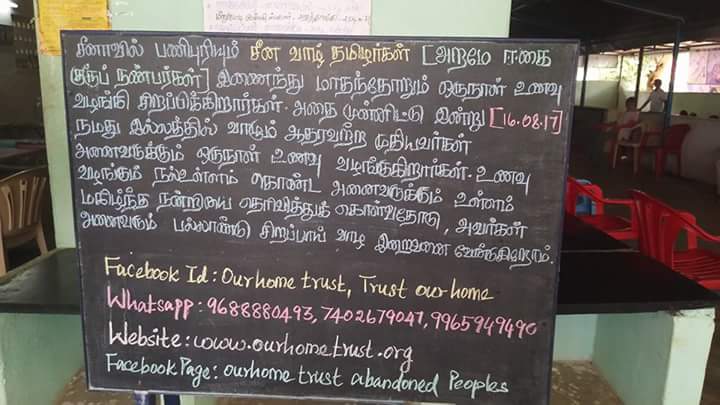 சீனாவில் பணிபுரியும் சீன வாழ் தமிழர்கள் [அறமே ஈகை
குழு நண்பர்கள்] இணைந்து மாதந்தோறும் ஒருநாள் உணவு
வழங்கி சிறப்பிக்கிறார்கள். அதை முன்னிட்டு இன்று [16.08.17]
நமது இல்லத்தில் வாழும் ஆதரவற்ற முதியவர்கள்
அனைவருக்கும் ஒருநாள் உணவு வழங்குகிறார்கள். உணவு
வழங்கும் நல்உள்ளம் கொண்ட அனைவருக்கும் உள்ளம்
மகிழ்ந்த நன்றியை தெரிவித்துக் கொள்வதோடு, அவர்கள்
அனைவரும் பல்லாண்டு சிறப்பாய் வாழ இறைவனை வேண்டுகிறோம்.
Facebook Id: Ourhome trust, Trust ourhome
Whatsapp: 9688880493, 7402679047, 9965949490
Website: www.ourhometrust.org
Facebook Page: ourhome trust abandoned Peoples